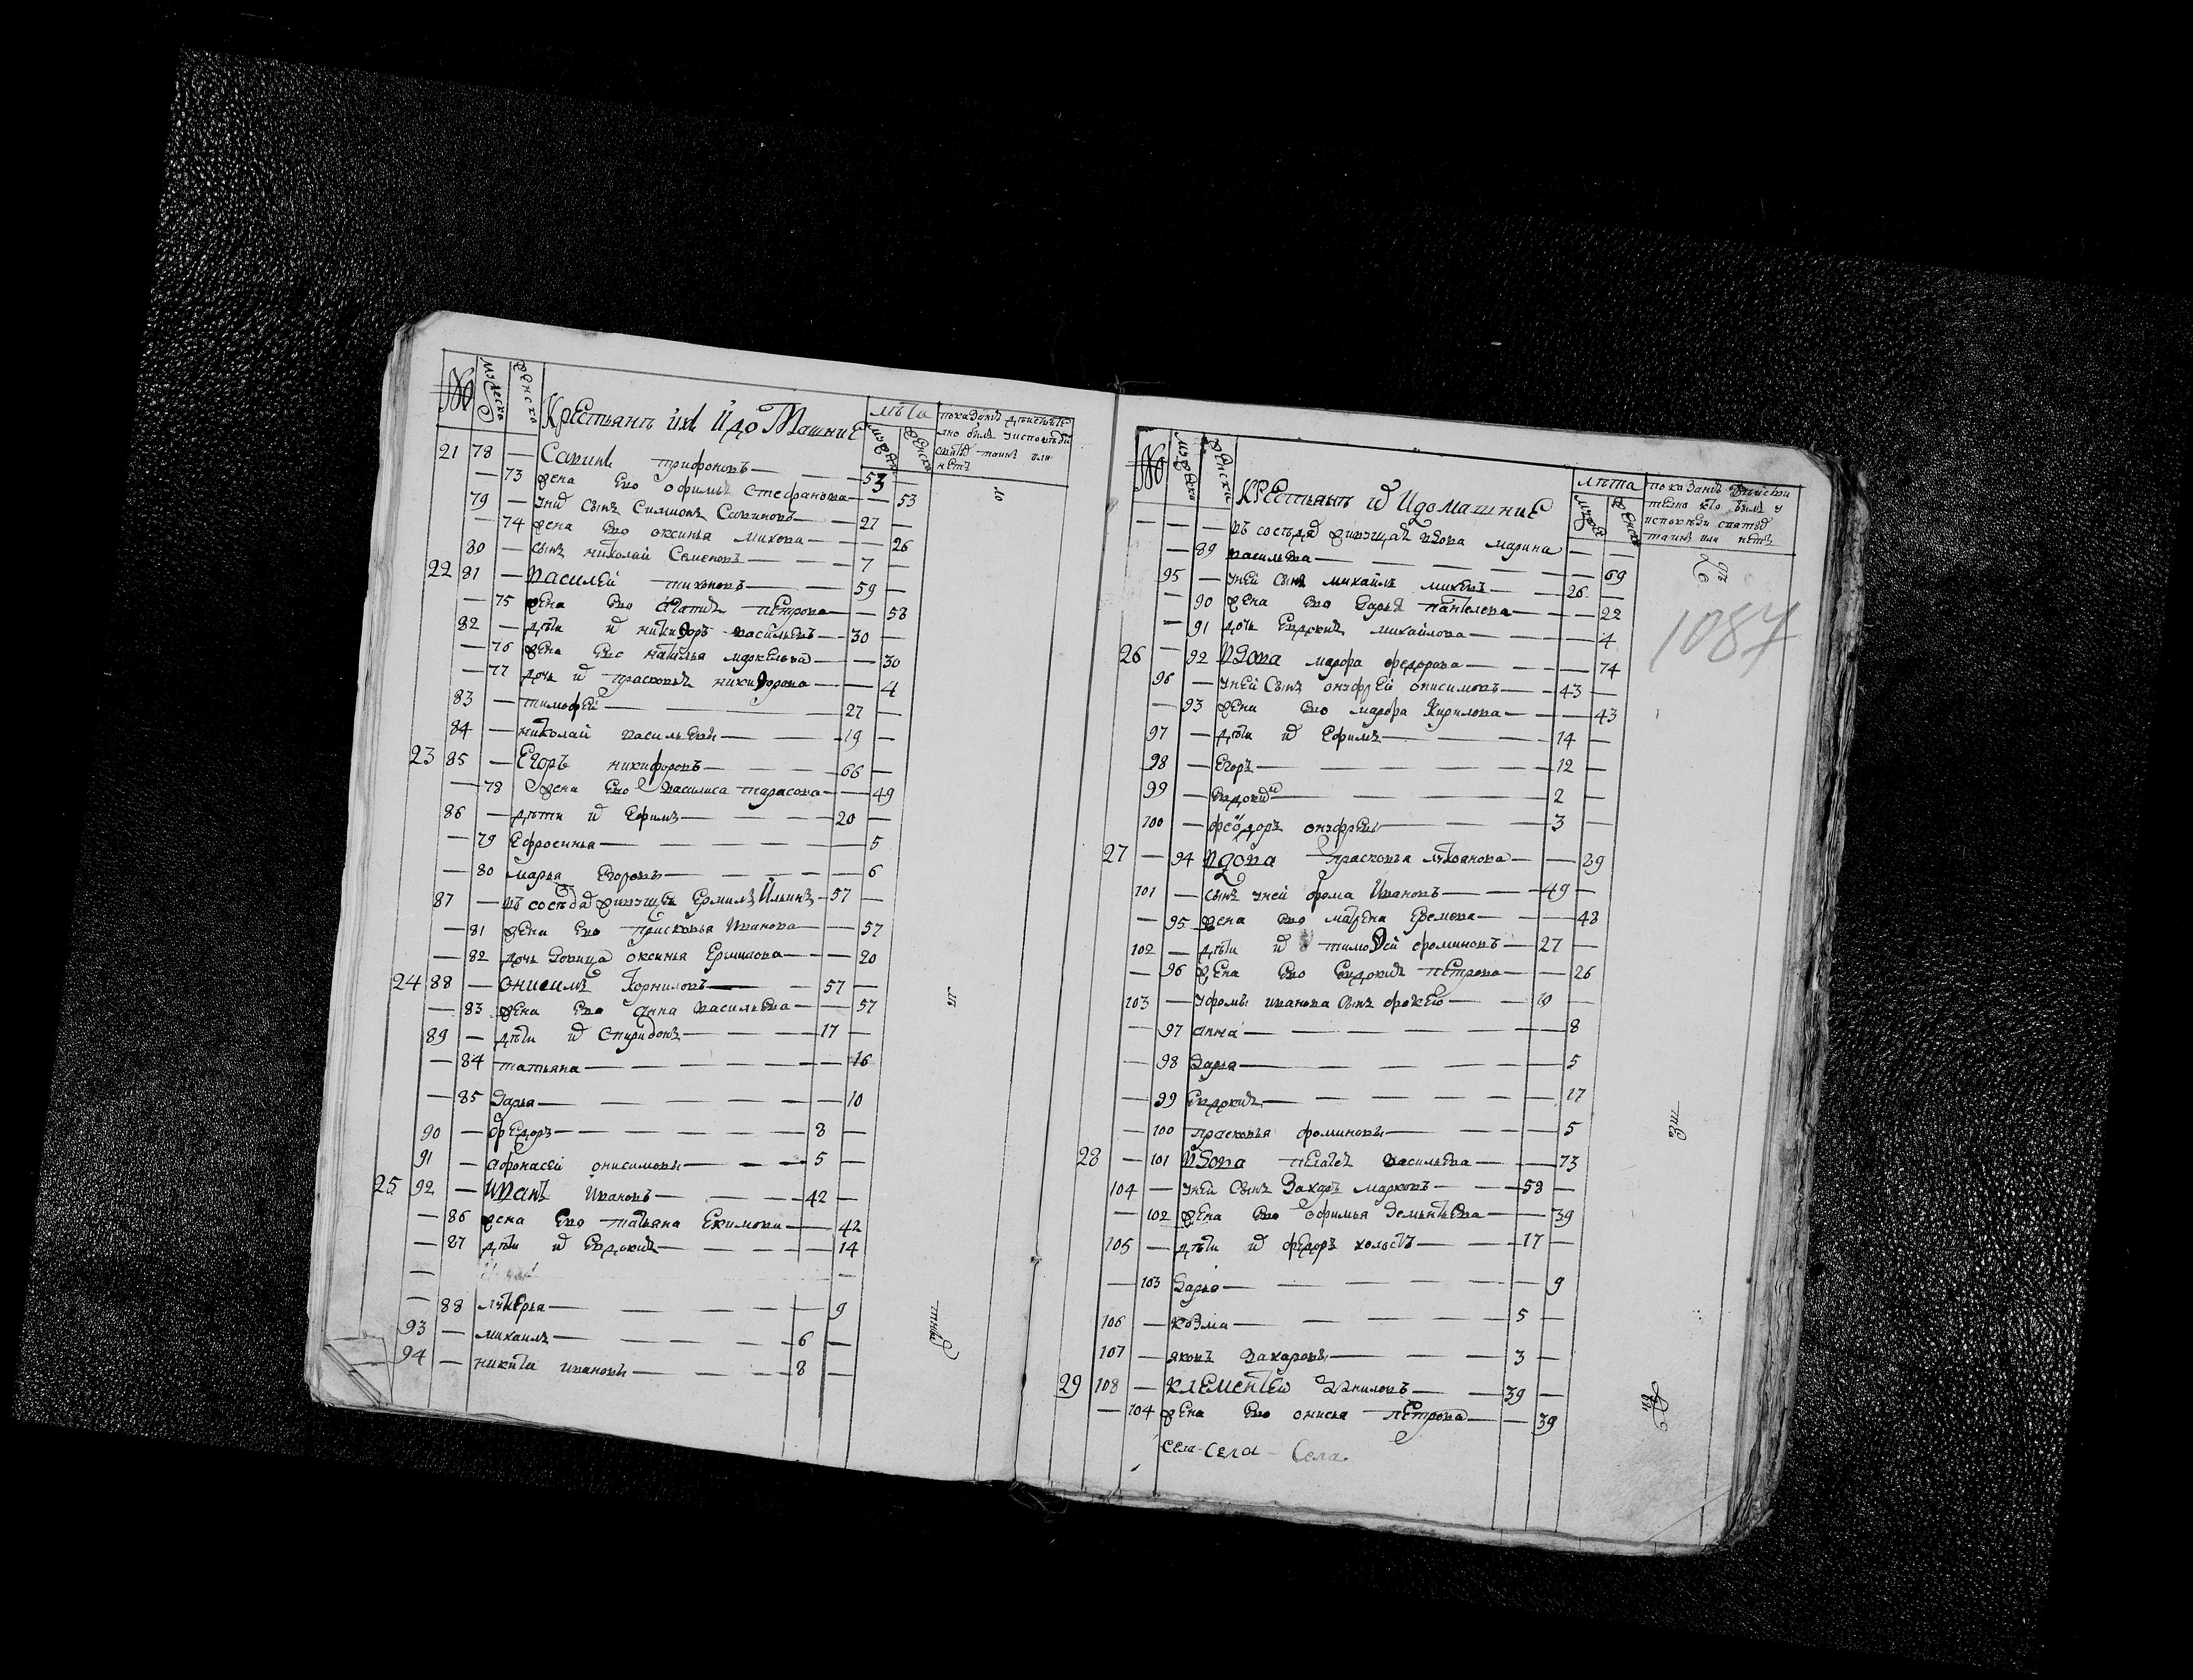 № мужеска женска Крестьянъ их и домашние лѣта мужеска женска показанъ дѣиствите
лно былъ уисповѣди
святыя таинъ или
нетъ
21 78 — Савинъ трифоновъ — 53 —
— 73 жена ево офимья Стефанова — 53
79 — унид сынъ Симионъ Савиновъ — 27 —
— 74 жена ево оксинья михева — 26
80 — сынъ николай Семеновъ — 7 —
22 81 — василей тихоновъ — 59 —
— 75 жена ево агатия петрова — 58
82 — дѣти их никифоръ васильевъ — 30 —
— 76 жена ево наталья маркельва — 30
— 77 дочь их прасковья никифорова — 4
83 — тимофей — 27 —
84 — николай васильевы — 19 —
23 85 — Егоръ никифоровъ — 66 —
— 78 жена ево василиса тарасова — 49
86 — дѣти их Ефимъ — 20 —
— 79 Ефросинья — 5
— 80 марья Егоровы — 6
87 — въ сосѣдяхъ живущей Ермилъ Ильинъ — 57 —
— 81 жена ево прасковья Иванова — 57
— 82 дочь вдовица оксинья Ермилова — 20
24 88 — Онисимъ Корниловъ — 57 —
— 83 жена ево анна васильева — 57
89 — дѣти их Спиридонъ — 17 —
— 84 татьяна — 16
— 85 дарья — 10
90 — федоръ — 8 —
91 — афонасей онисимовы — 5 —
25 92 — Иванъ Ивановъ — 42 —
— 86 жена ево татьяна Екимова — 42
— 87 дѣти их Евдокия — 14
— 88 лукерья — 9
93 — михаилъ — 6 —
94 — никита ивановы — 8 —
№ мужеска женска Крестьянъ их и домашние лѣта мужеска женска показанъ дѣистви
телно кто былъ у
исповѣди святыя
таинъ или нетъ
1087
— — — въ сосѣдяхъ живущая вдова марина — —
— 89 васильева — 69
95 — уней сынъ михайлъ михевъ — 26 —
— 90 жена ево дарья пантелева — 22
— 91 дочь Евдокия михайлова — 4
26 — 92 вдова марфа федорова — 74
96 — уней сынъ онуфрей онисимовъ — 43 —
— 93 жена ево марфа Кирилова — 43
97 — дѣти их Ефимъ — 14 —
98 — Егоръ — 12 —
99 — Евдоким — 2 —
100 — феодоръ онуфревы — 3 —
27 — 94 вдова прасковья лукоанова — 29
101 — сынъ уней фома Ивановъ — 49 —
— 95 жена ево матрена Еремева — 48
102 — дѣти их тимофей фоминовъ — 27 —
— 96 жена ево Евдокия петрова — 26
103 — уфомы иванова сынъ фокею — 10 —
— 97 анна — 8
— 98 дарья — 5
— 99 Евдокия — 17
— 100 прасковья фоминовы — 5
28 — 101 вдова пелагея васильева — 73
104 — уней сынъ Захаръ марковъ — 58 —
— 102 жена ево офимья дементьева — 39
105 — дѣти их федоръ холостъ — 17 —
— 103 дарья — 9
106 — козма — 5 —
107 — яковъ захаровы — 3 —
29 108 — клементей даниловъ — 39 —
— 104 жена ево онисья петрова — 39
села - села - Села